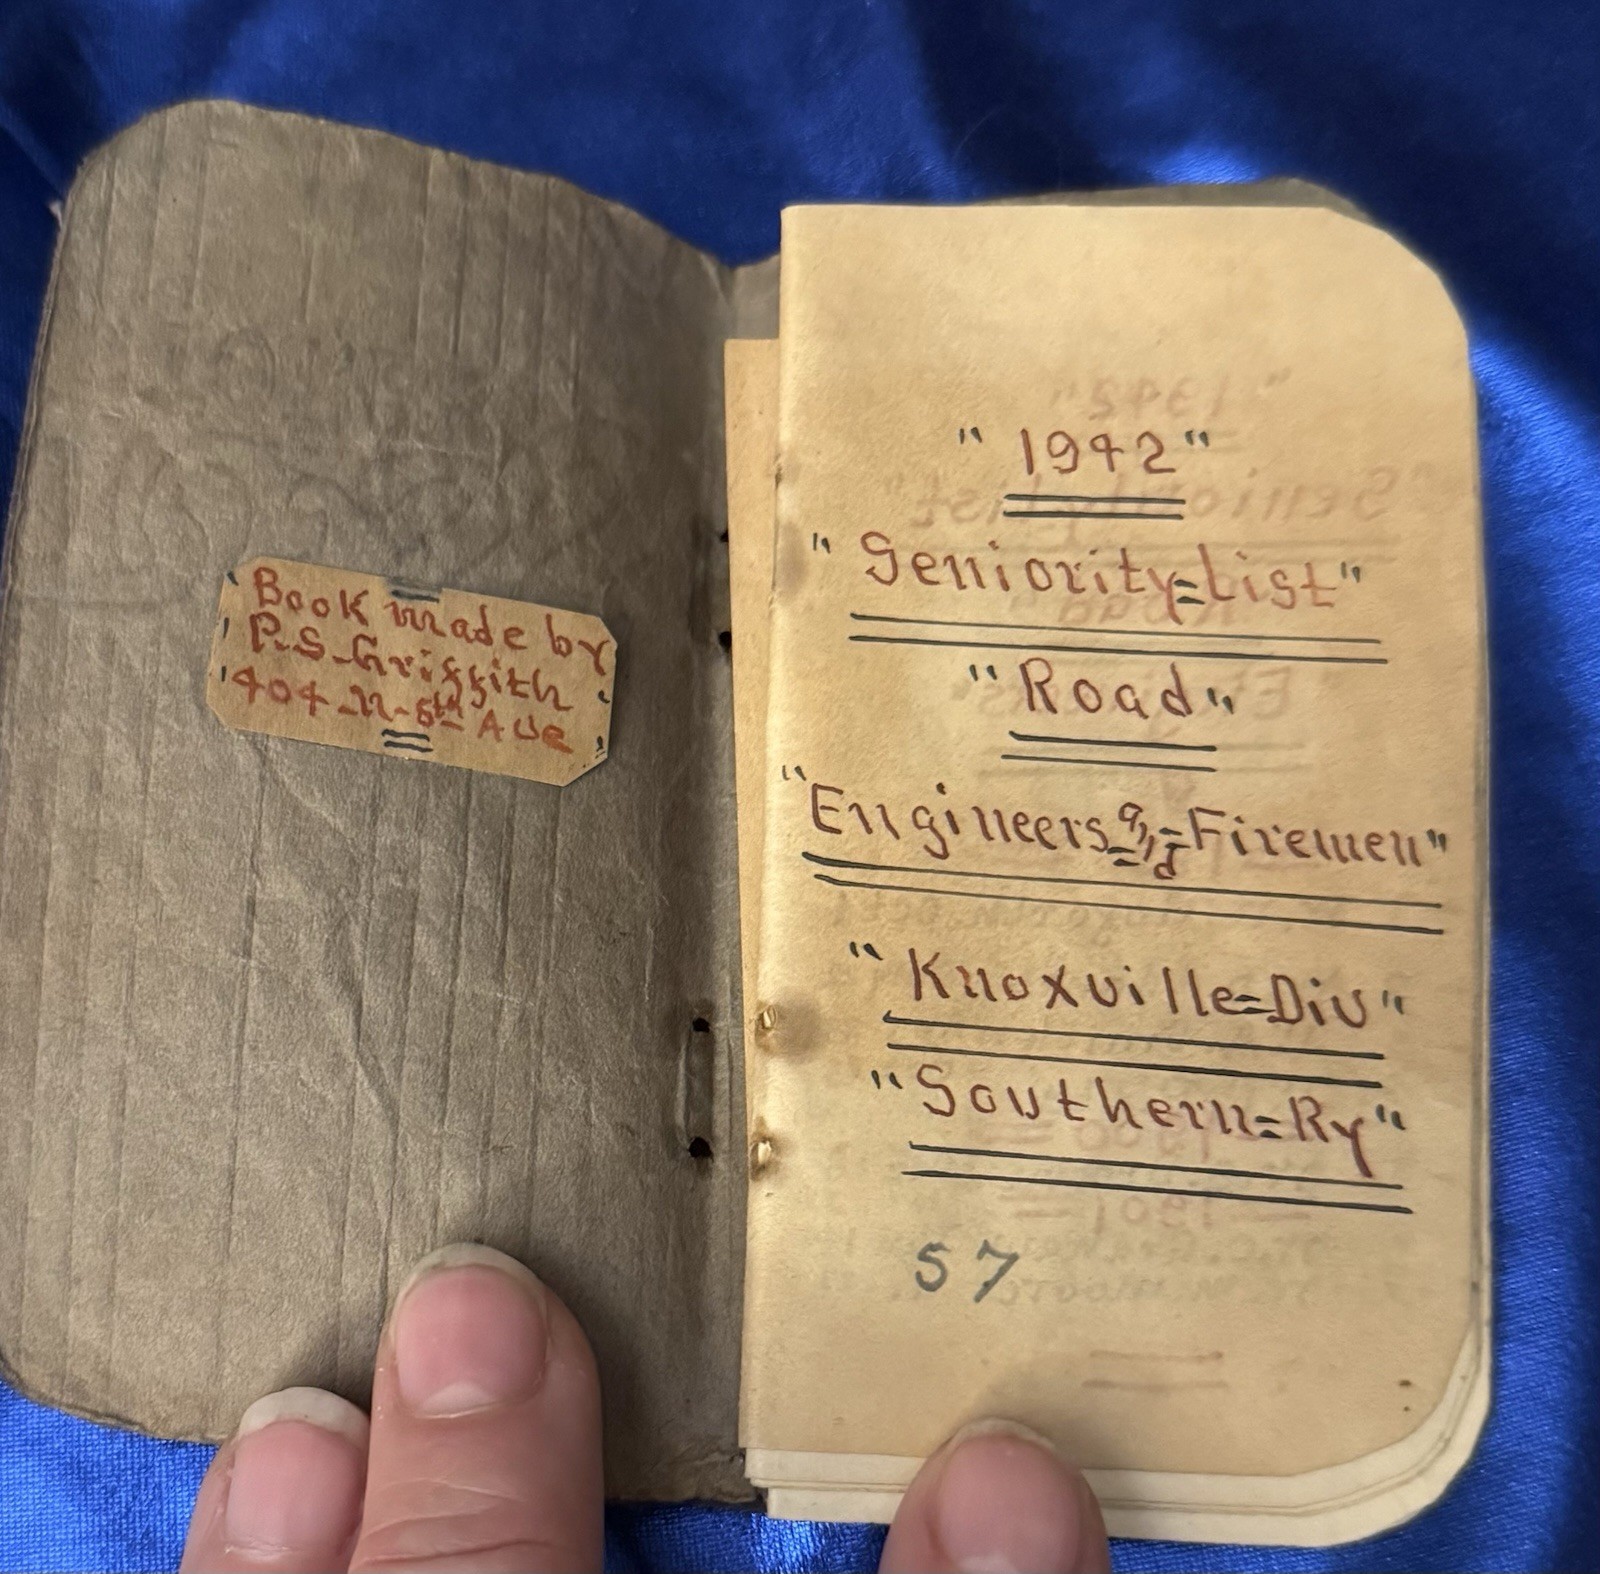 "Book made by
"P.S-Griffith
"404-N-6th Ave"
"1942"
"Seniority=List"
"Road"
"Engineers=and=Firemen"
"Knoxville=Div"
"Southern=Ry"
57